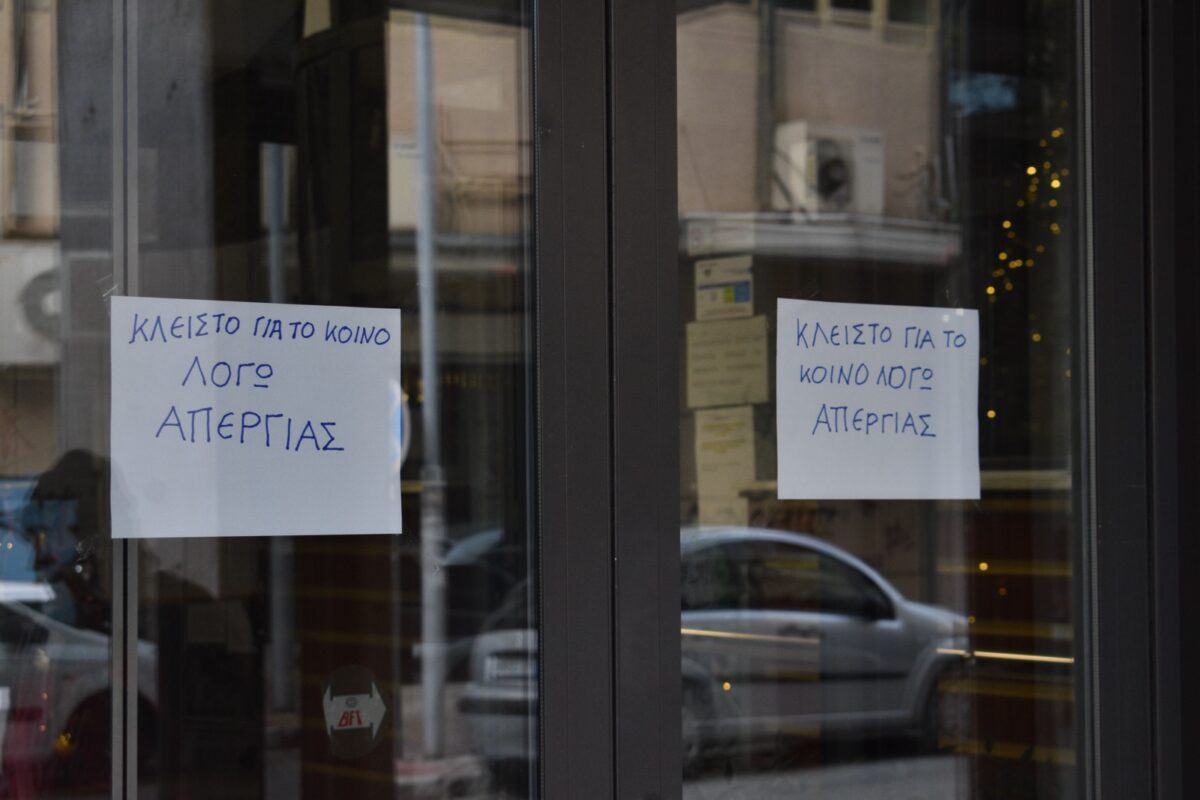 ΚΛΕΙΣΤΟ ΓΙΑ ΤΟ ΚΟΙΝΟ
ΛΟΓΩ
ΑΠΕΡΓΙΑΣ
ΚΛΕΙΣΤΟ ΓΙΑ ΤΟ
ΚΟΙΝΟ ΛΟΓΩ
ΑΠΕΡΓΙΑΣ
BFT